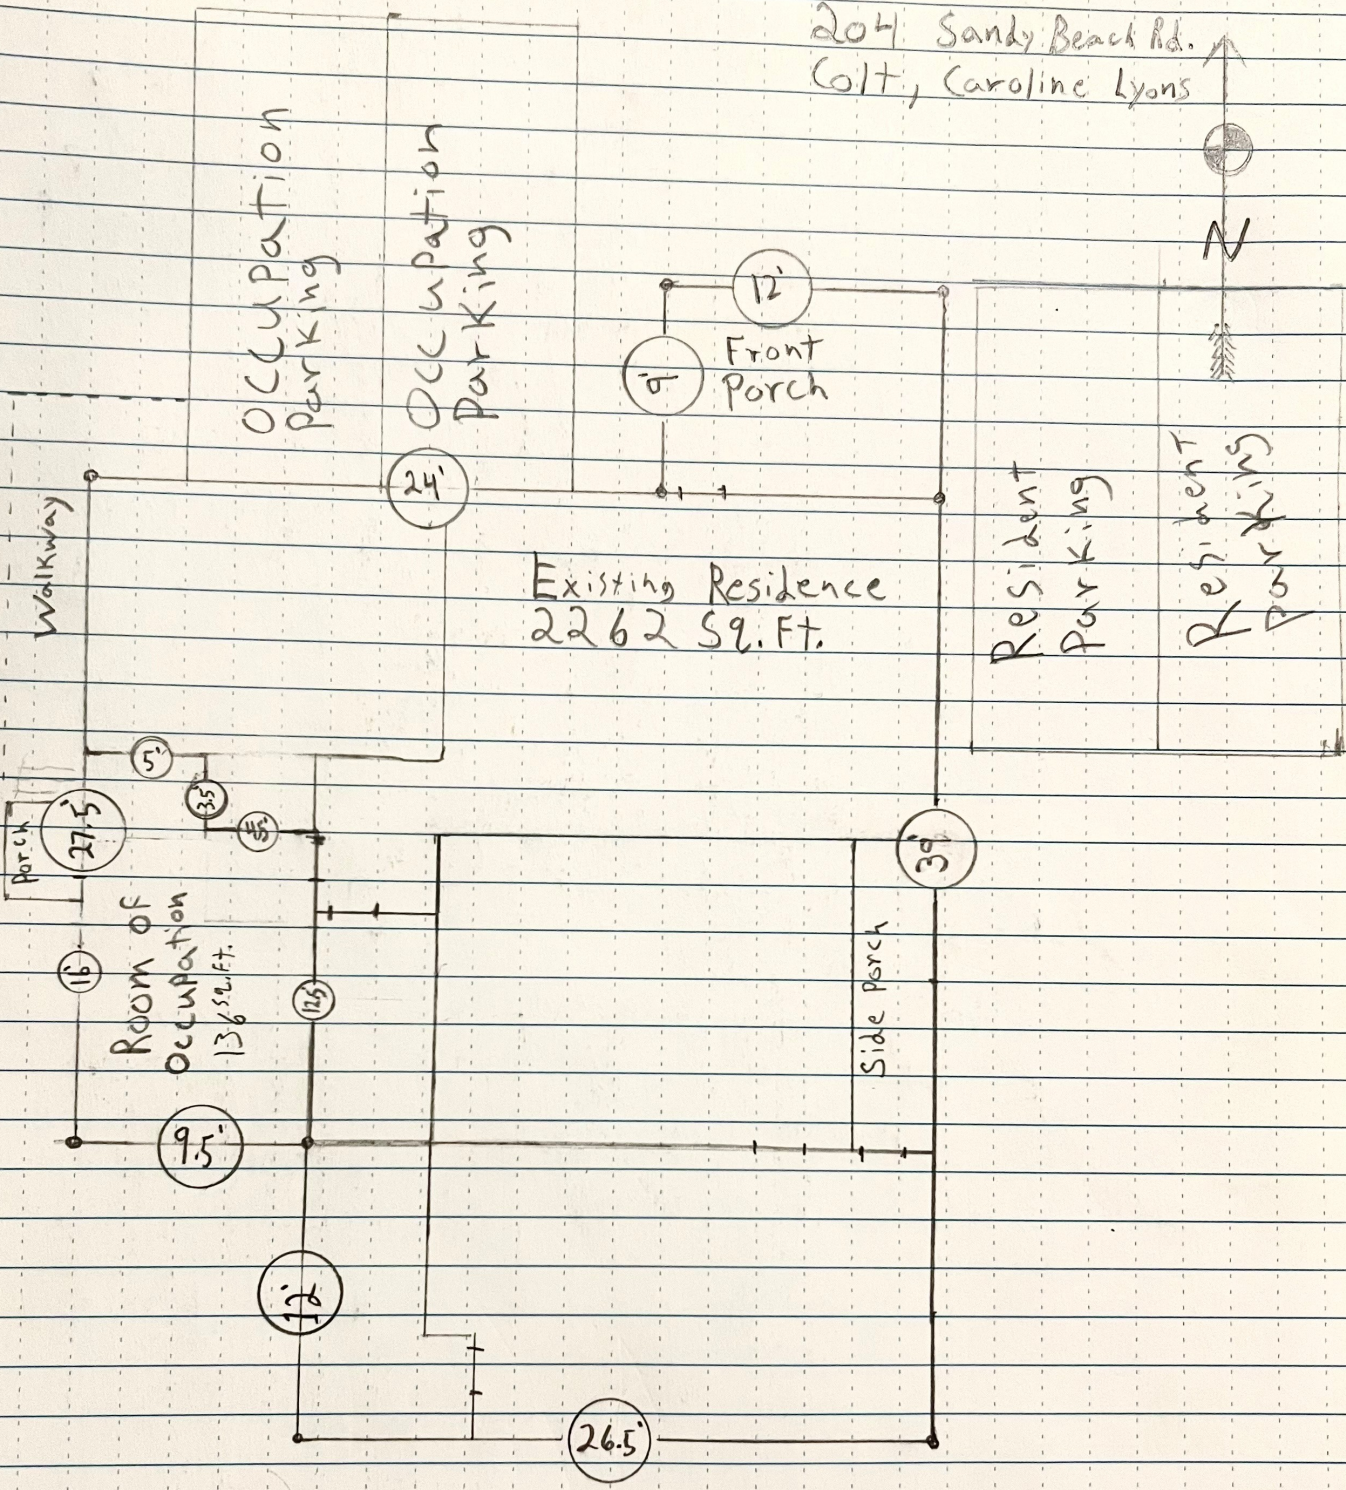 204 Sandy Beach Rd.
Colt, Caroline Lyons
N
Occupation
Parking
Occupation
Parking
12'
9'
Front
Porch
24'
Walkway
Existing Residence
2262 Sq. Ft.
Resident
Parking
Resident
Parking
5'
3.5'
27.5'
Porch
39'
Room of
Occupation
136 Sq. Ft.
16'
12.5'
Side Porch
9.5'
12'
26.5'